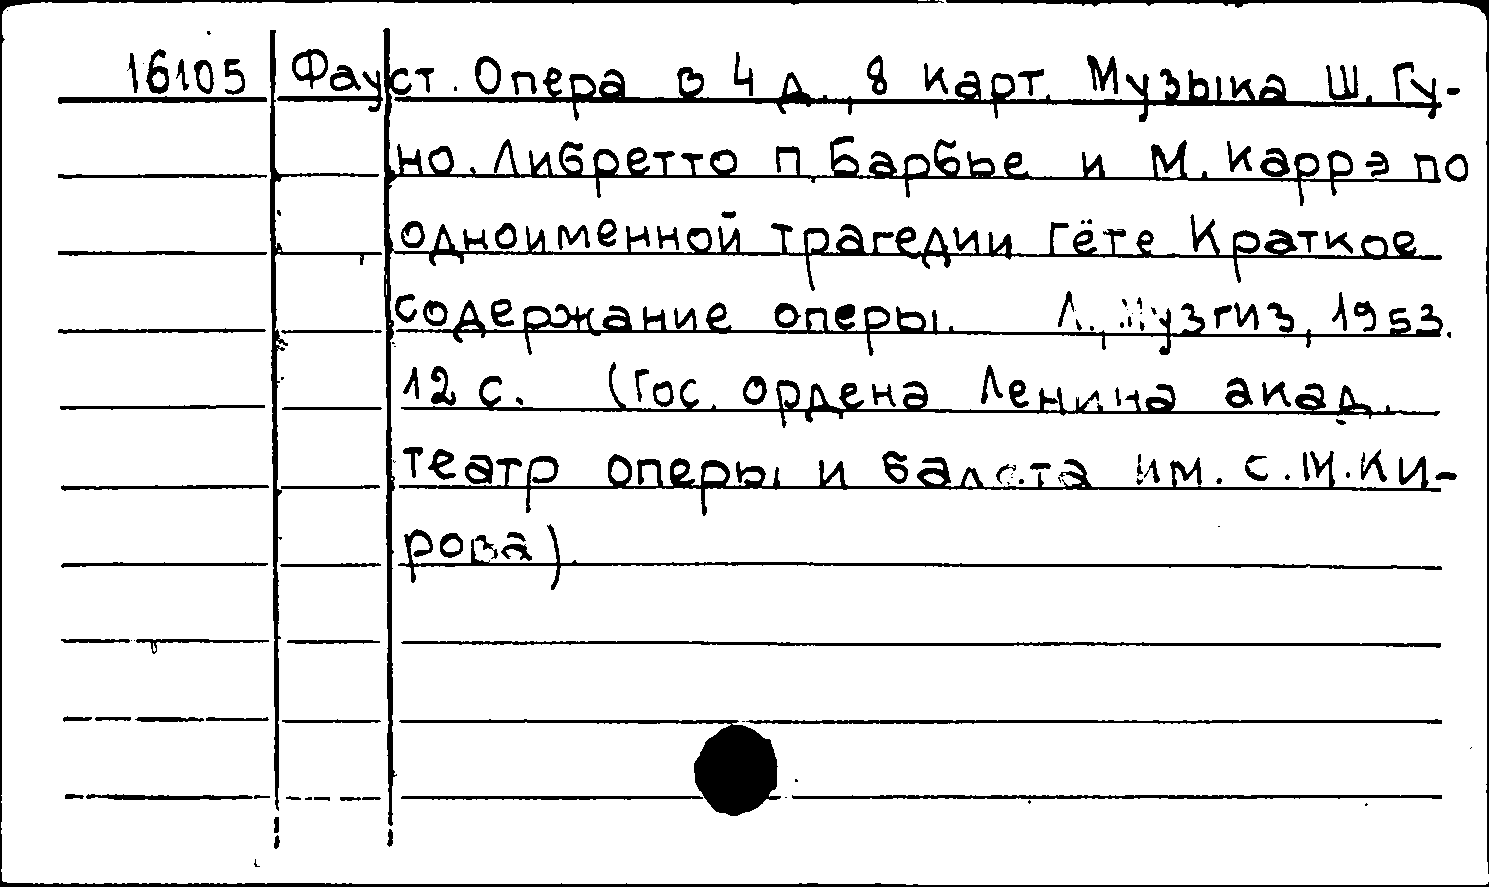 16105 Фауст. Опера в 4 д., 8 карт. Музыка Ш. Гу-
но. Либретто П. Барбье и М. Каррэ по
одноименной трагедии Гёте Краткое
содержание оперы. Л., Музгиз, 1953.
12 с. (Гос. ордена Ленина акад.
театр оперы и балета им. С.М.Ки-
рова)